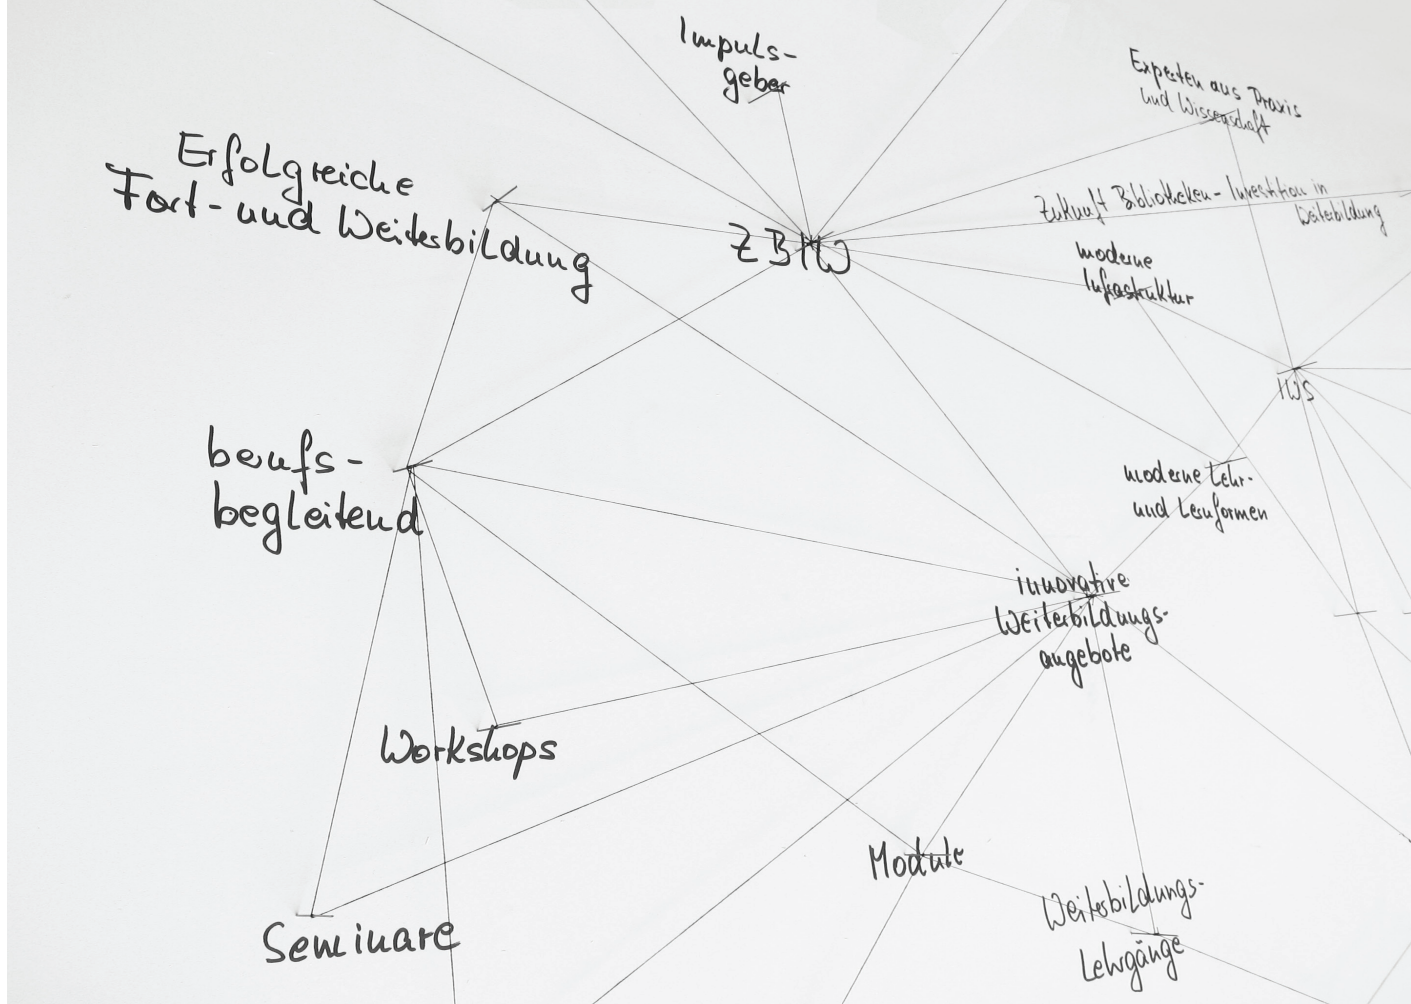 Impuls-
geber
Experten aus Praxis
und Wissenschaft
Erfolgreiche
Fort- und Weiterbildung
Zukunft Bibliotheken - Investition in
Weiterbildung
ZBIW
moderne
Infrastruktur
IWS
berufs-
begleitend
moderne Lehr-
und Lernformen
innovative
Weiterbildungs-
angebote
Workshops
Module
Weiterbildungs-
Lehrgänge
Seminare